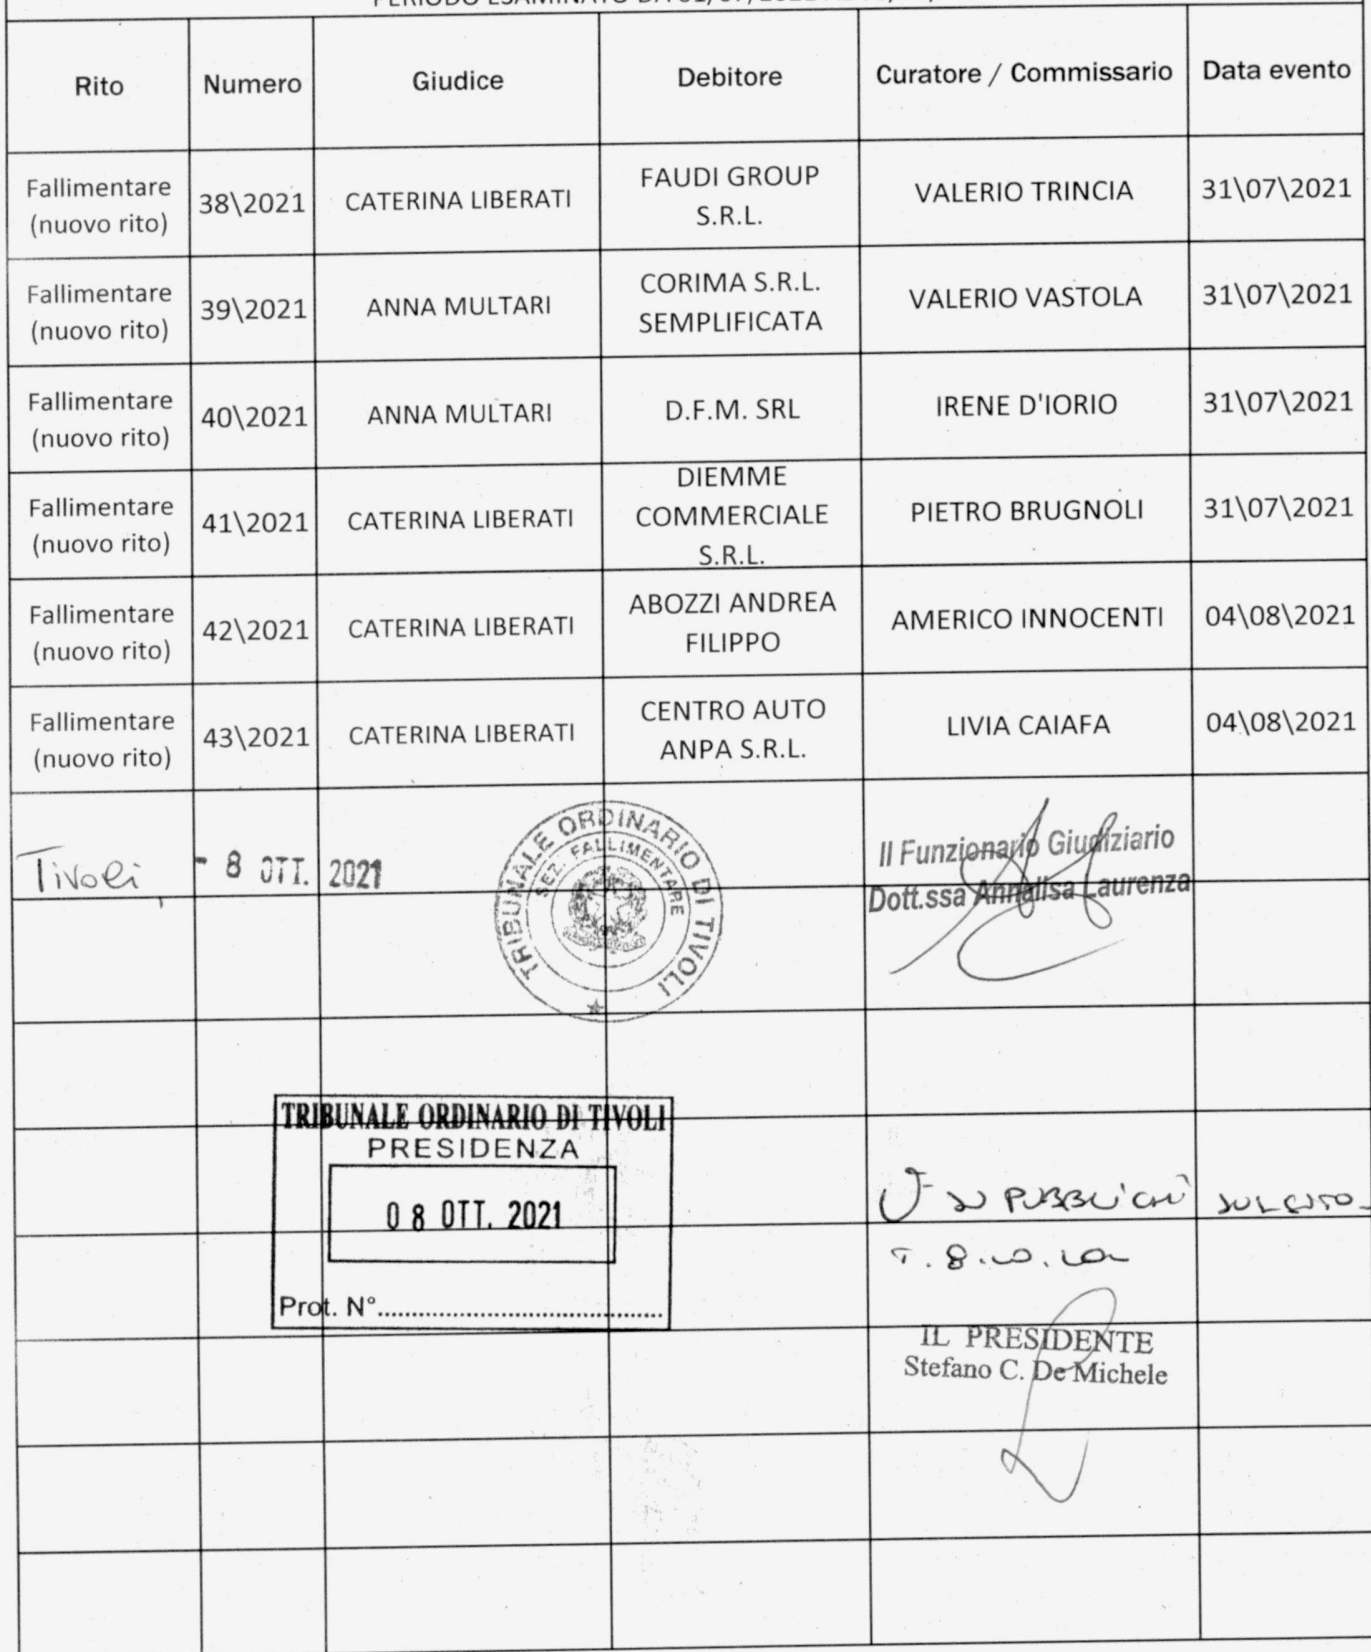 PERIODO ESAMINATO DA
Rito Numero Giudice Debitore Curatore / Commissario Data evento
Fallimentare (nuovo rito) 38\2021 CATERINA LIBERATI FAUDI GROUP S.R.L. VALERIO TRINCIA 31\07\2021
Fallimentare (nuovo rito) 39\2021 ANNA MULTARI CORIMA S.R.L. SEMPLIFICATA VALERIO VASTOLA 31\07\2021
Fallimentare (nuovo rito) 40\2021 ANNA MULTARI D.F.M. SRL IRENE D'IORIO 31\07\2021
Fallimentare (nuovo rito) 41\2021 CATERINA LIBERATI DIEMME COMMERCIALE S.R.L. PIETRO BRUGNOLI 31\07\2021
Fallimentare (nuovo rito) 42\2021 CATERINA LIBERATI ABOZZI ANDREA FILIPPO AMERICO INNOCENTI 04\08\2021
Fallimentare (nuovo rito) 43\2021 CATERINA LIBERATI CENTRO AUTO ANPA S.R.L. LIVIA CAIAFA 04\08\2021
Tivoli, - 8 OTT. 2021
TRIBUNALE ORDINARIO DI TIVOLI
SEZ. FALLIMENTARE
Il Funzionario Giudiziario
Dott.ssa Annalisa Laurenza
TRIBUNALE ORDINARIO DI TIVOLI
PRESIDENZA
08 OTT. 2021
Prot. N°
SI PUBBLICHI SUL SITO
IL PRESIDENTE
Stefano C. De Michele